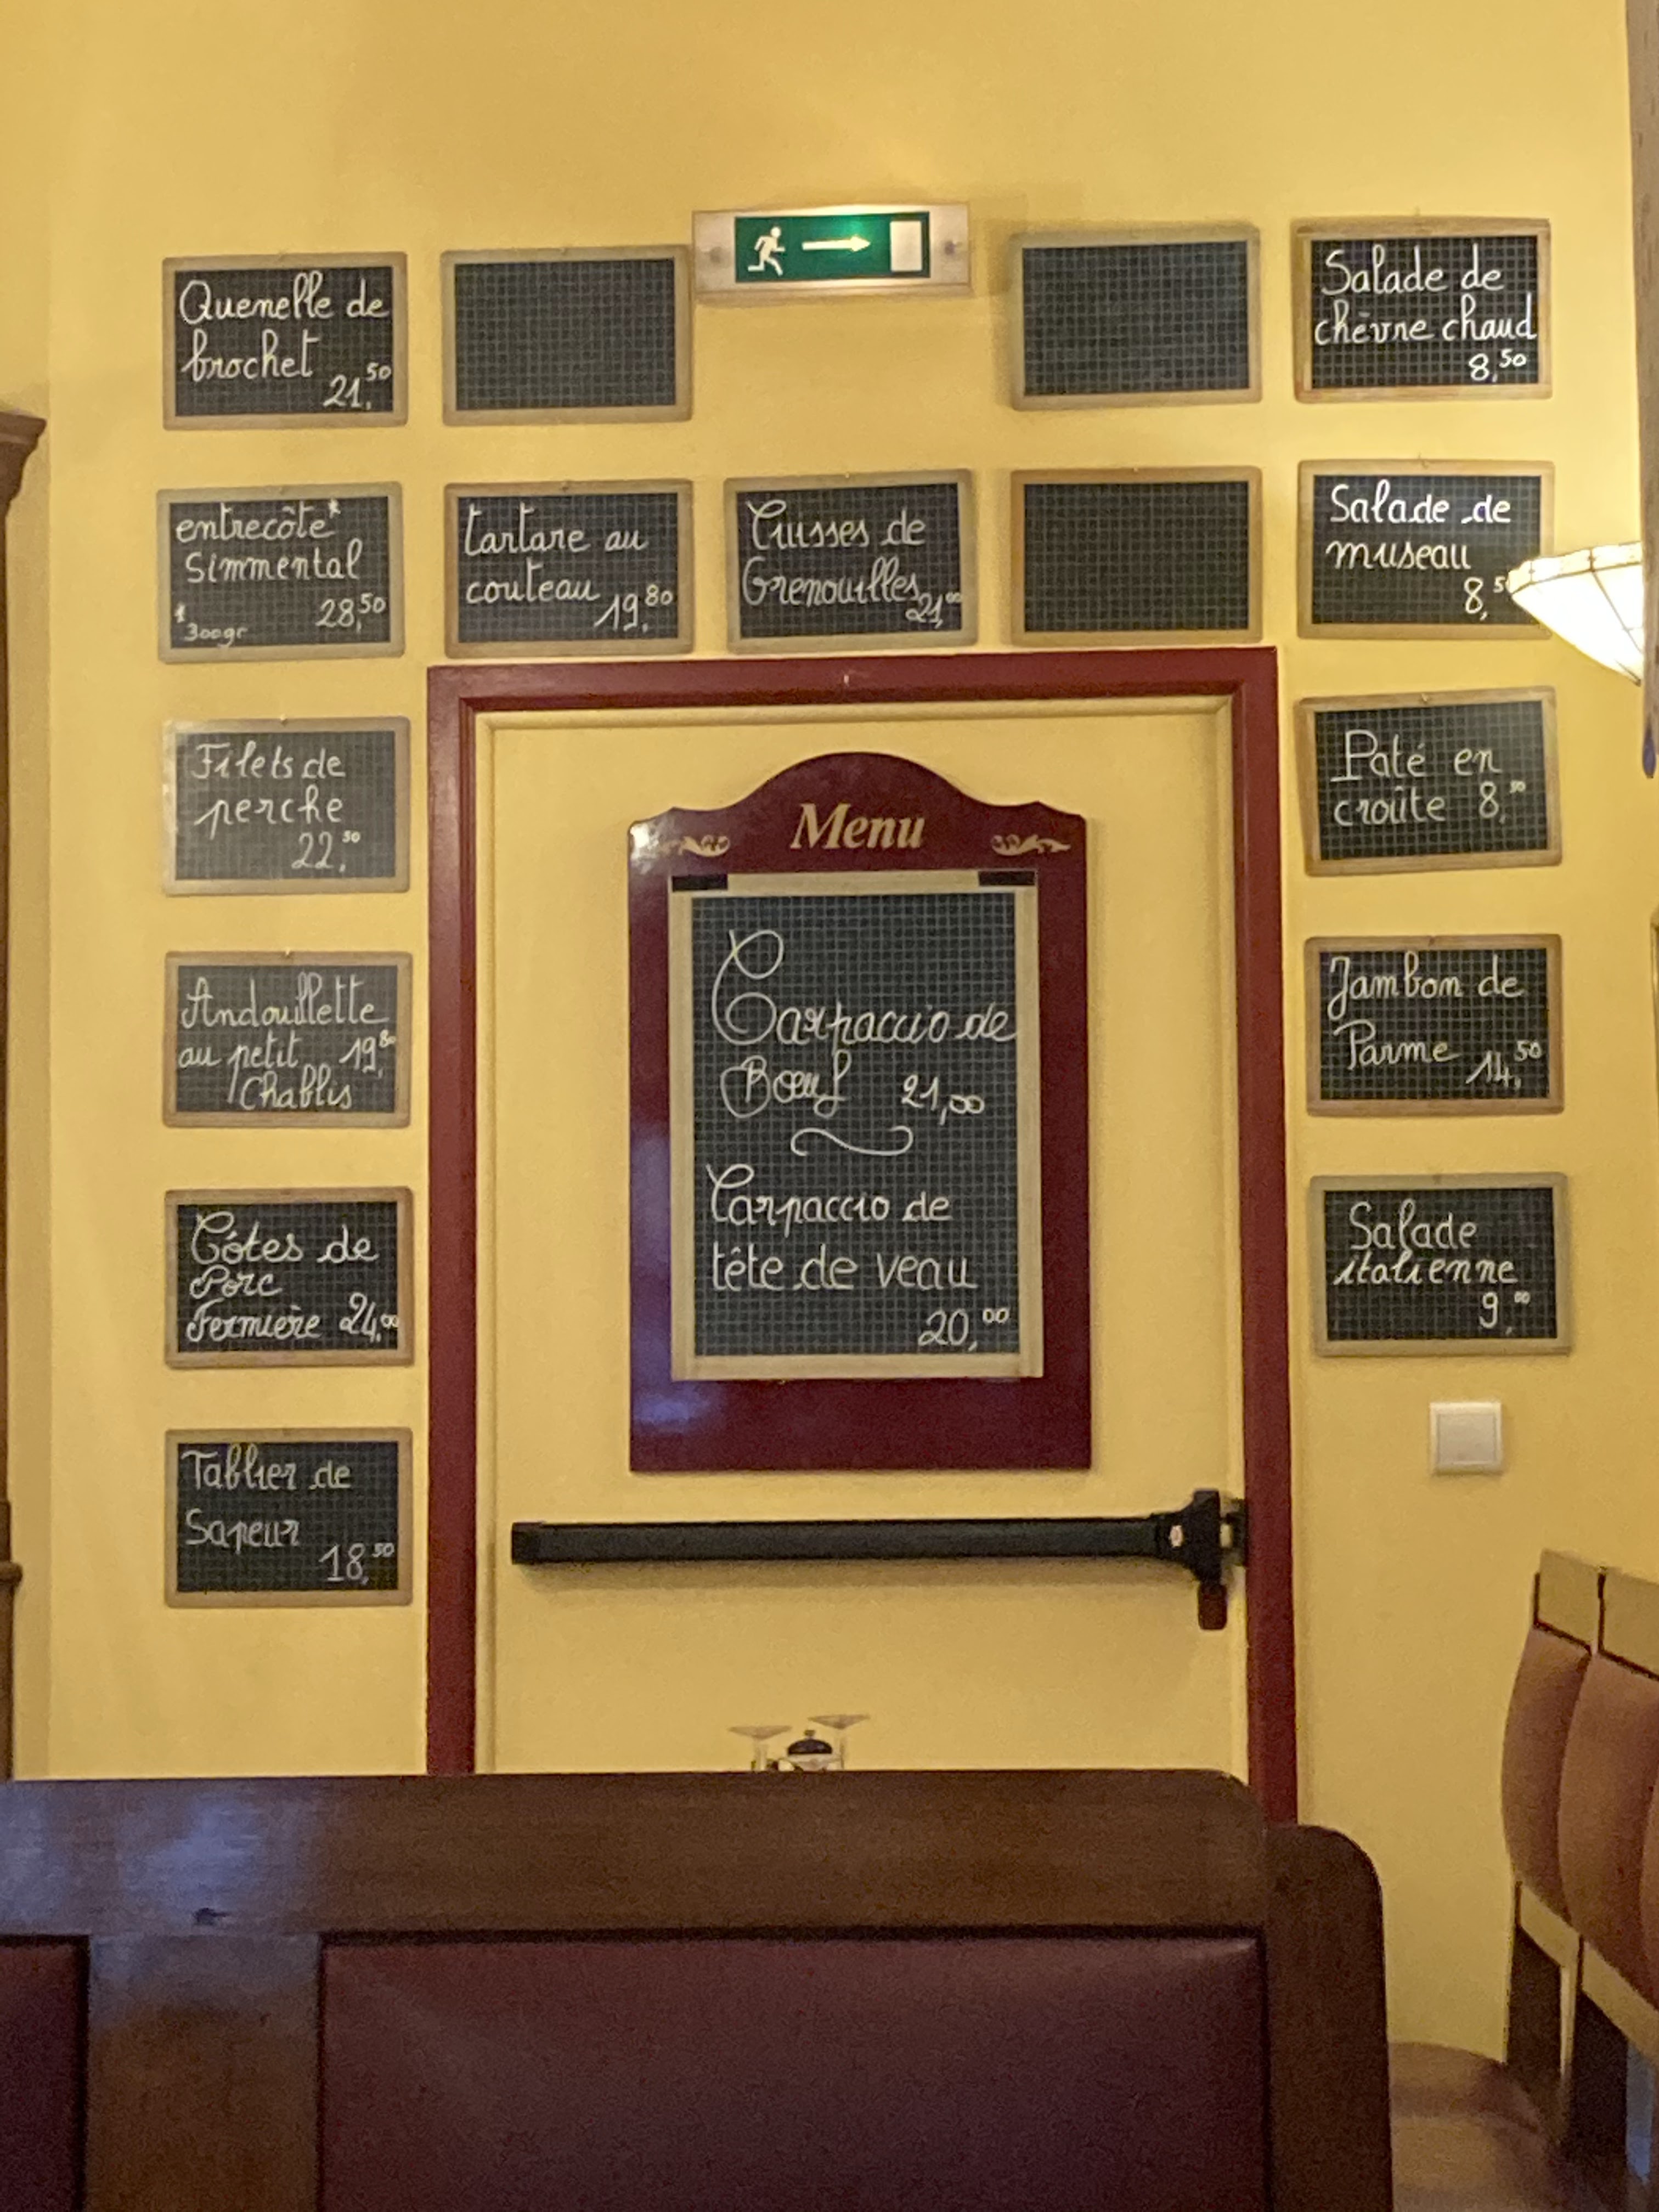 Quenelle de
brochet
21,50
Salade de
chèvre chaud
8,50
entrecôte*
Simmental
28,50
* 300gr
tartare au
couteau 19,80
Cuisses de
Grenouilles 21,00
Salade de
museau
8,5
Filets de
perche
22,50
Paté en
croûte 8,50
Andouillette
au petit 19,80
Chablis
Jambon de
Parme 14,50
Côtes de
Porc
Fermière 24,00
Salade
italienne
9,00
Tablier de
Sapeur
18,50
Menu
Carpaccio de
Bœuf 21,00
Carpaccio de
tête de veau
20,00